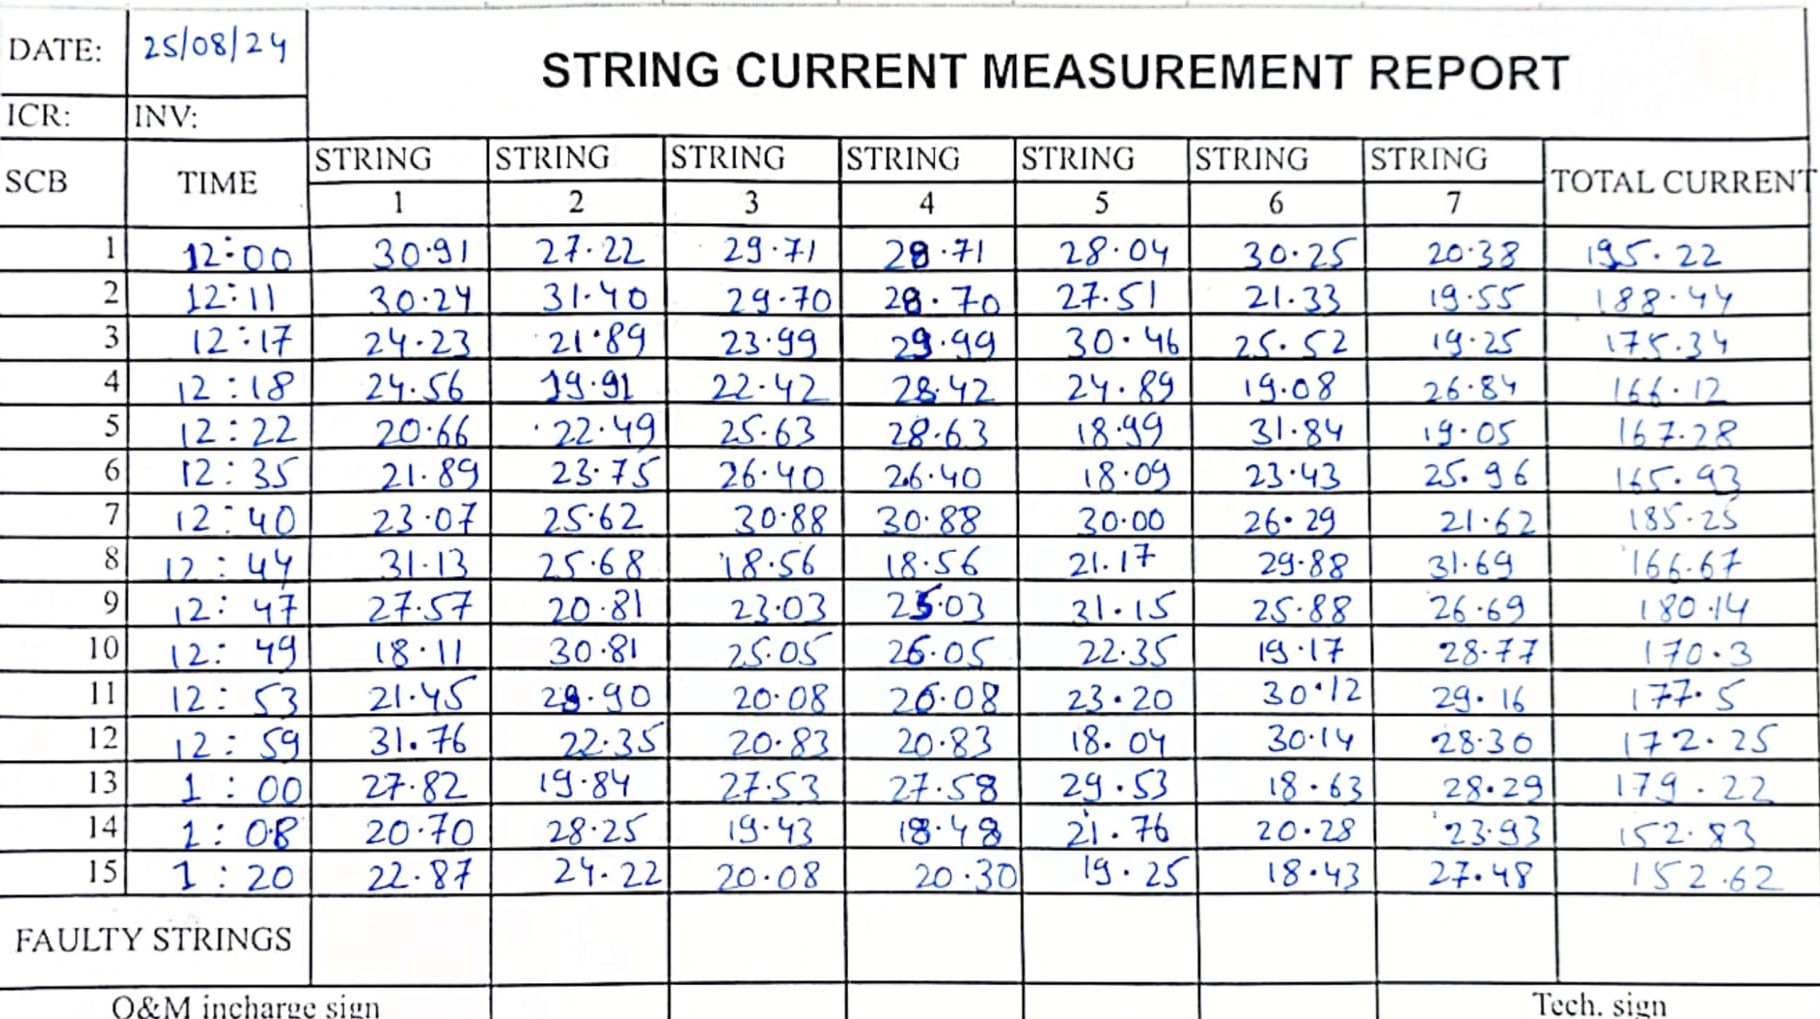 DATE: 25/08/24 STRING CURRENT MEASUREMENT REPORT
ICR: INV:
SCB TIME STRING STRING STRING STRING STRING STRING STRING TOTAL CURRENT
1 2 3 4 5 6 7
1 12:00 30.91 27.22 29.71 28.71 28.04 30.25 20.38 195.22
2 12:11 30.24 31.40 29.70 28.70 27.51 21.33 19.55 188.44
3 12:17 24.23 21.89 23.99 29.99 30.46 25.52 19.25 175.34
4 12:18 24.56 19.91 22.42 28.42 24.89 19.08 26.84 166.12
5 12:22 20.66 22.49 25.63 28.63 18.99 31.84 19.05 167.28
6 12:35 21.89 23.75 26.40 26.40 18.09 23.43 25.96 165.93
7 12:40 23.07 25.62 30.88 30.88 30.00 26.29 21.62 185.25
8 12:44 31.13 25.68 18.56 18.56 21.17 29.88 31.69 166.67
9 12:47 27.57 20.81 23.03 25.03 31.15 25.88 26.69 180.14
10 12:49 18.11 30.81 25.05 26.05 22.35 19.17 28.77 170.3
11 12:53 21.45 28.90 20.08 26.08 23.20 30.12 29.16 177.5
12 12:59 31.76 22.35 20.83 20.83 18.04 30.14 28.30 172.25
13 1:00 27.82 19.84 27.53 27.58 29.53 18.63 28.29 179.22
14 1:08 20.70 28.25 19.43 18.48 21.76 20.28 23.93 152.83
15 1:20 22.87 24.22 20.08 20.30 19.25 18.43 27.48 152.62
FAULTY STRINGS
O&M incharge sign Tech. sign